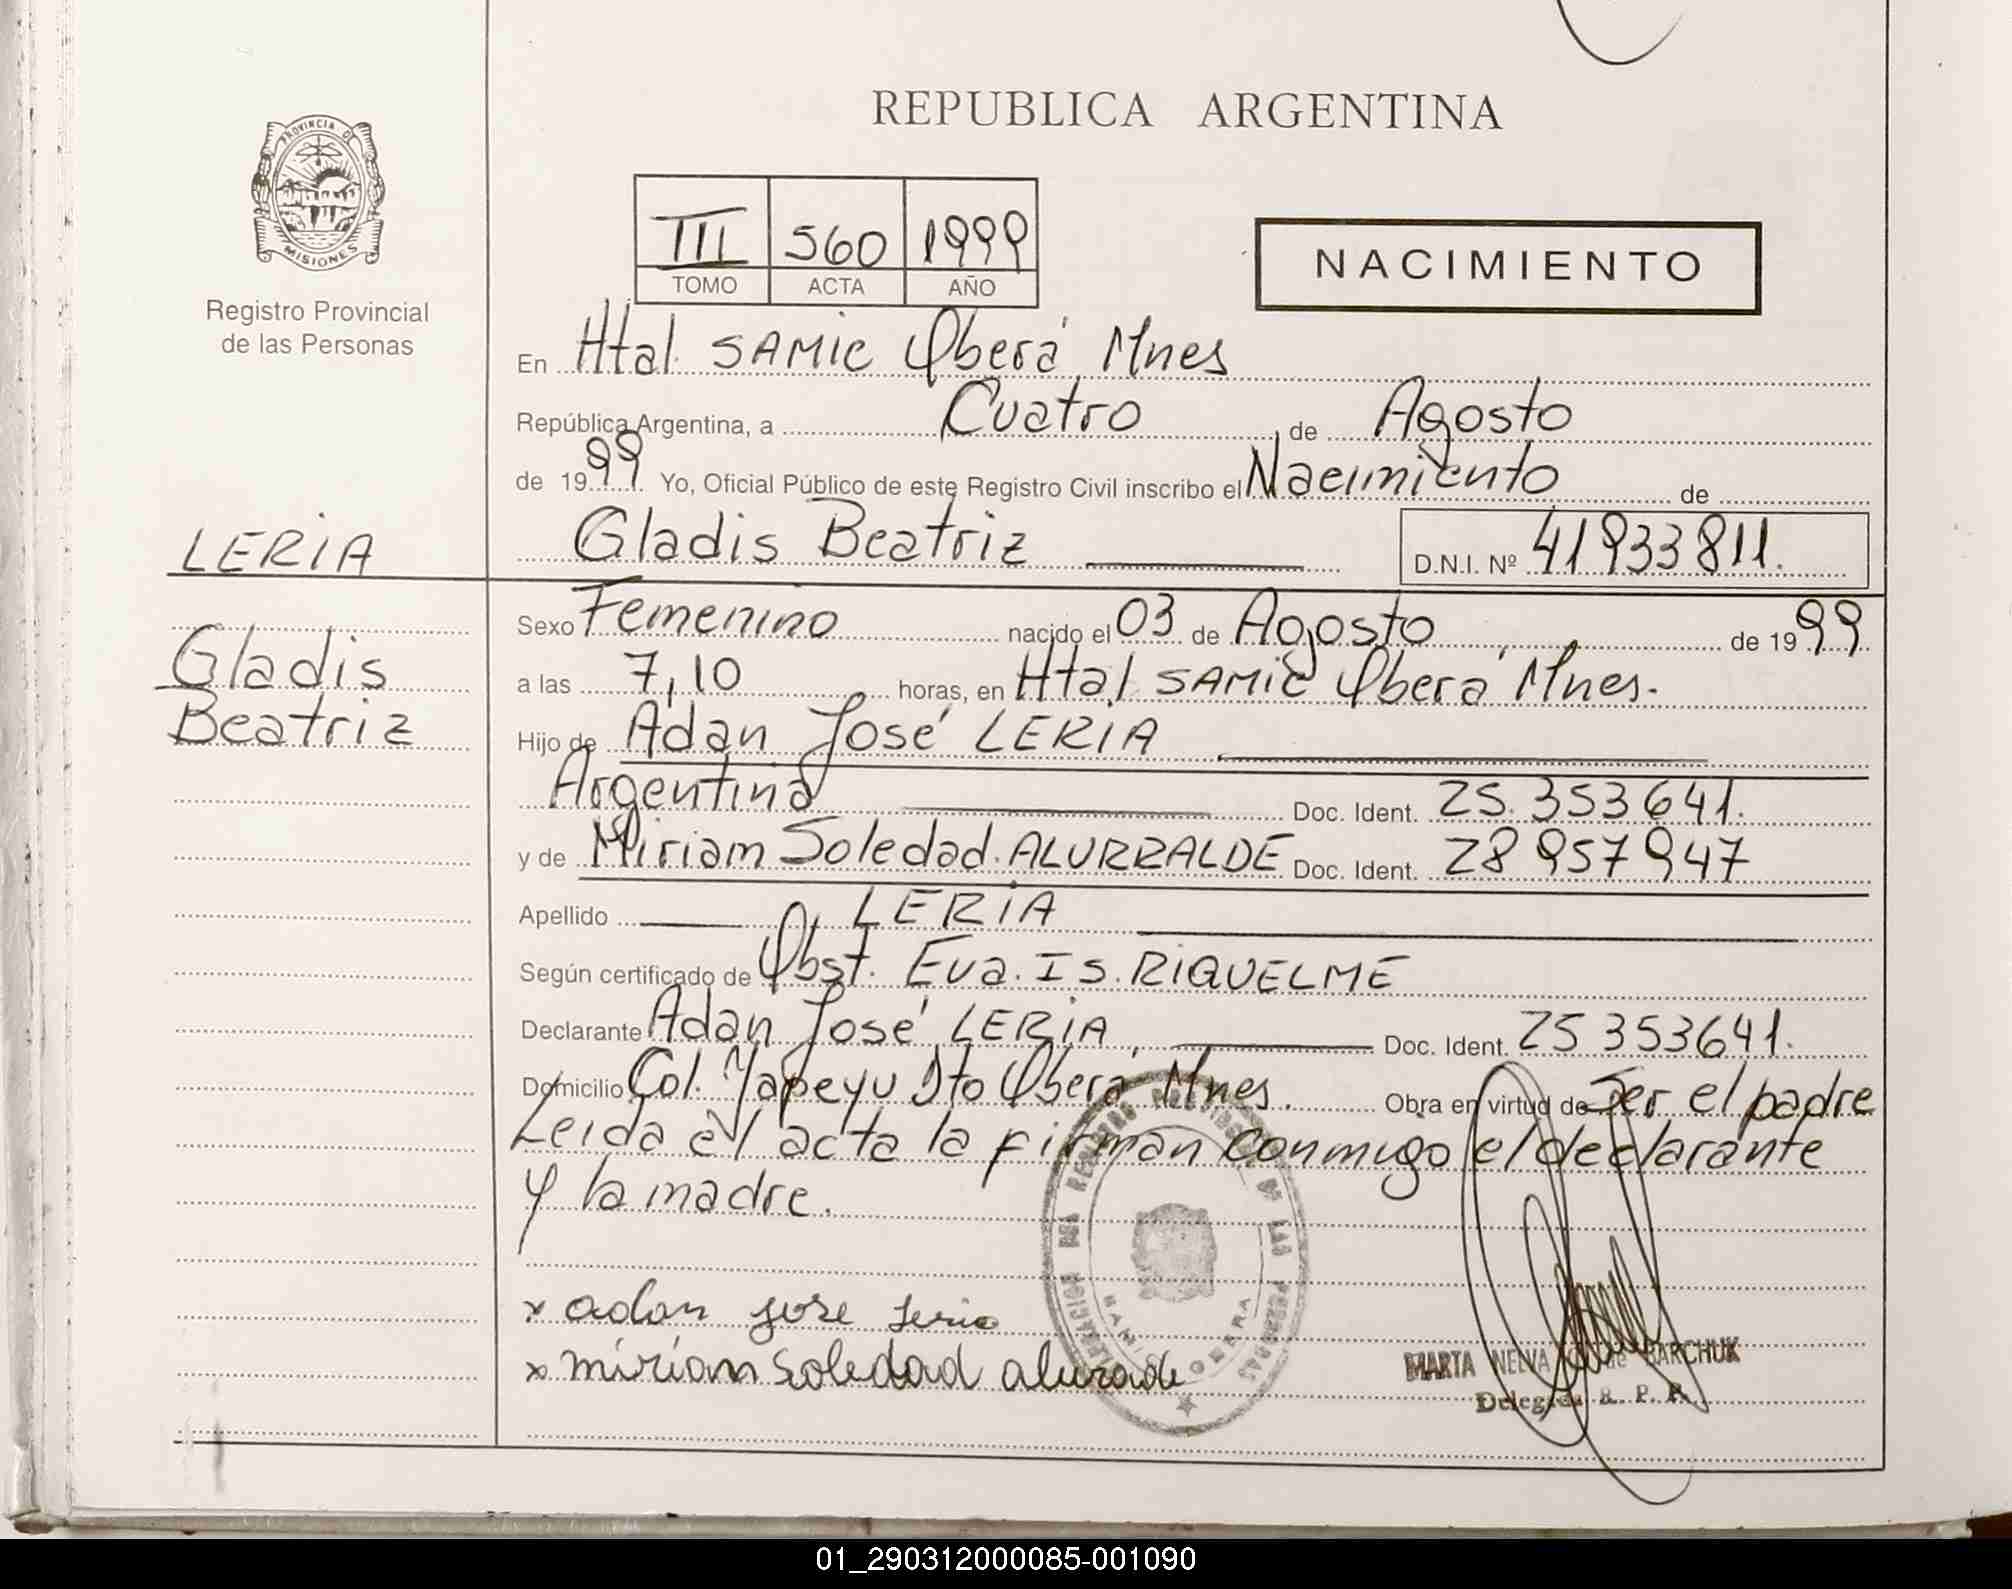 REPUBLICA ARGENTINA
PROVINCIA DE
MISIONES
Registro Provincial
de las Personas
III 560 1999
TOMO ACTA AÑO
NACIMIENTO
En Htal. SAMIC Oberá Mnes
República Argentina, a Cuatro de Agosto
de 1999 Yo, Oficial Público de este Registro Civil inscribo el Nacimiento de
LERIA
Gladis Beatriz D.N.I. Nº 41933811.
Gladis
Beatriz
Sexo Femenino nacido el 03 de Agosto de 1999
a las 7,10 horas, en Htal SAMIC Oberá Mnes.
Hijo de Adan José LERIA
Argentina Doc. Ident. 25.353641.
y de Miriam Soledad. ALURRALDE Doc. Ident. 28957947
Apellido LERIA
Según certificado de Obst. Eva. Is. RIQUELME
Declarante Adan José LERIA, Doc. Ident. 25353641.
Domicilio Col. Yapeyu Dto Oberá, Mnes. Obra en virtud de Ser el padre
Leida el acta la firman conmigo el declarante
y la madre.
x adan jose leria
x mirian soledad
MARTA NELVA de BARCHUK
Delegada R. P. P.
01_290312000085-001090